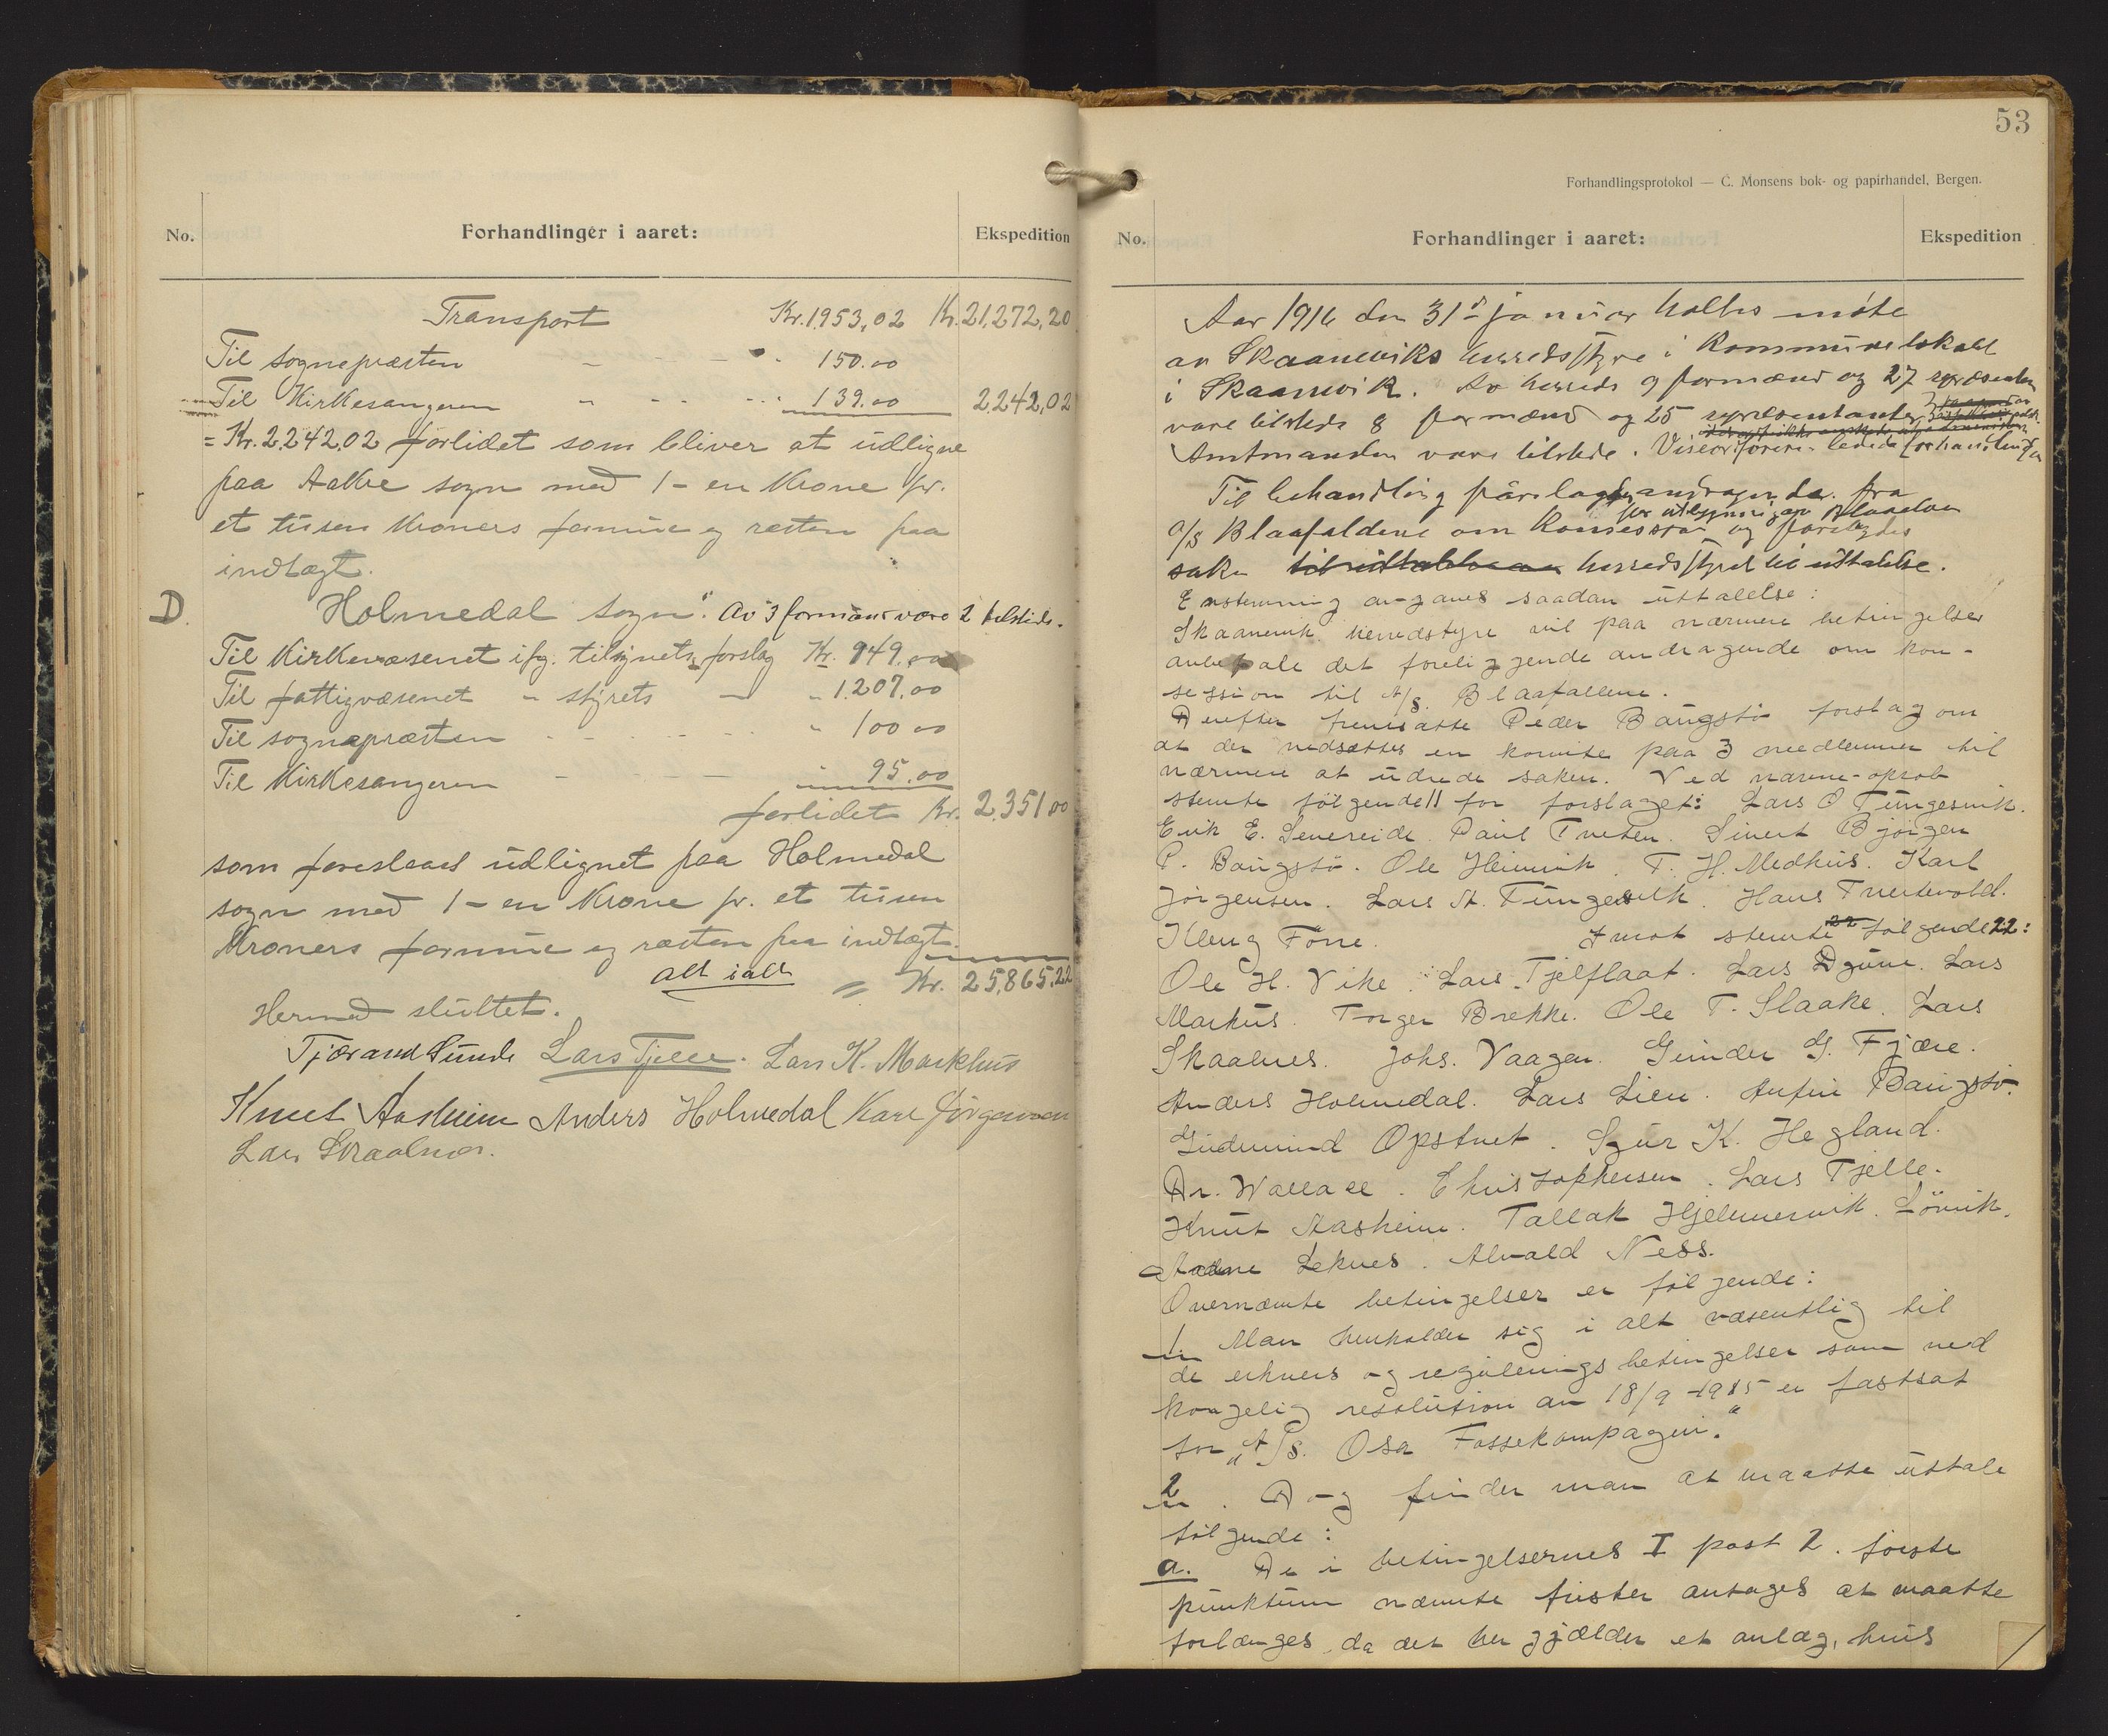 No.
Forhandlinger i aaret:
Ekspedition
Transport Kr. 1953,02 Kr. 21,272,20
Til sognepræsten - - - - - 150.00
Til Kirkesangeren - - - - 139.00 2,242,02
= Kr. 2,242,02 forlidet som bliver at udligne
paa Aakre sogn med 1 - en Krone pr.
et tusen Kroners formue og resten paa
indtægt.
D. Holmedal sogn". Av 3 formænd vare 2 tilstede.
Til Kirkevæsenet ifg. tilsynets forslag Kr. 949,00
Til fattigvæsenet " styrets — " 1.207,00
Til sognepræsten - - - - - " 100 00
Til Kirkesangeren - - - " 95.00
forlidet Kr. 2,351 00
som foreslaaes udlignet paa Holmedal
sogn med 1 - en Krone pr. et tusen
Kroners formue og resten paa indtægt.
alt ialt = Kr. 25,865,22
Hermed sluttet.
Tjærand Sunde Lars Tjelle. Lars K. Markhus
Knut Aasheim Anders Holmedal Karl Jörgensen
Lars Skaalnes.
53
Forhandlingsprotokol — C. Monsens bok- og papirhandel, Bergen.
No.
Forhandlinger i aaret:
Ekspedition
Aar 1916 den 31 januar holtes møte
av Skaaneviks herredsstyre i Kommunelokalet
i Skaanevik. Av herreds 9 formænd og 27 repræsentanter
vare tilstede 8 formænd og 25 repræsentanter
Amtmanden vare tilstede. Viseordfører ledede forhandlingen
Til behandling forelagdes andragende fra
for utbygning av Blaaelven
a/s Blaafaldene om Konsession og forelagdes
saken til uttalelse herredsstyret til uttalelse.
Enstemmig avgaves saadan uttalelse:
Skaanevik herredstyre vil paa nærmere betingelser
anbefale det foreliggende andragende om kon-
session til A/S. Blaafallene.
Derefter fremsatte Peder Baugstö forslag om
at der nedsættes en komite paa 3 medlemmer til
nærmere at utrede saken. Ved navne-oprob
stemte følgende 11 for forslaget: Lars O Tungesvik.
Erik E. Severeide. Paul Tveten. Sivert Bjørgen
P. Baugstö. Ole Heimvik. T. H. Medhus. Karl
Jörgensen. Lars A. Tungesvik. Hans Tveitevold.
Kleng Tönne. Imot stemte følgende 22:
Ole H. Vike. Lars Tjelflaat. Lars Djuve. Lars
Markus. Torger Brekke. Ole T. Slaake. Lars
Skaalnes. Johs. Vaagen. Gunder G. Fjære.
Anders Holmedal. Lars Lien. Anfin Baugstö.
Gudmund Opstvet. Sjur K. Hegland.
Dr. Wallace. Christophersen. Lars Tjelle.
Knut Aasheim. Tallak Hjelmervik. Lönvik.
Aadne Leknes. Alvald Ness.
Ovennævnte betingelser er følgende:
1 Man henholder sig i alt væsentlig til
de erhvervs og regulerings betingelser som ved
kongelig resolution av 18/9 - 1915 er fastsat
for „A/S. Osa Fossekompagni."
2. Dog finder man at maatte uttale
følgende:
a. De i betingelsernes I post 2. første
punktum nævnte frister antages at maatte
forlænges, da det her gjælder et anlæg, hvis